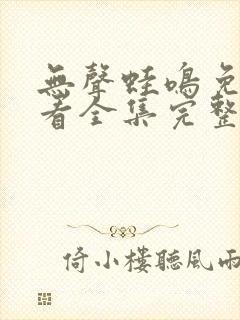 無聲蛙鳴免
看全集完整
倚小樓聽風雨